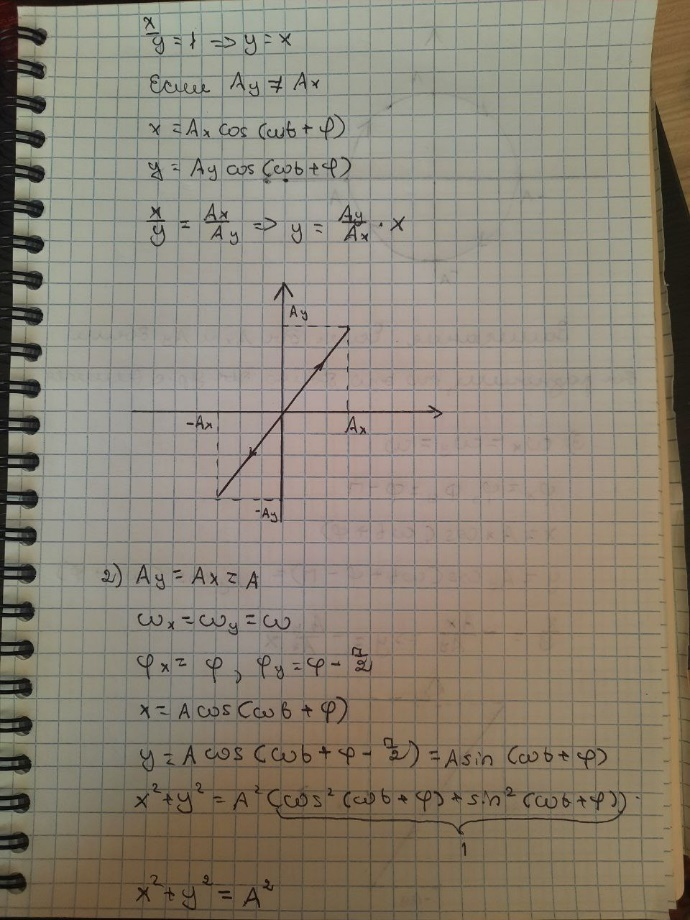 x/y = 1 => y = x
Если Ay ≠ Ax
x = Ax cos (ωt + φ)
y = Ay cos (ωt + φ)
x/y = Ax/Ay => y = Ay/Ax · x
Ay
-Ax
Ax
-Ay
2) Ay = Ax = A
ωx = ωy = ω
φx = φ, φy = φ - π/2
x = A cos (ωt + φ)
y = A cos (ωt + φ - π/2) = A sin (ωt + φ)
x² + y² = A² (cos² (ωt + φ) + sin² (ωt + φ))
1
x² + y² = A²